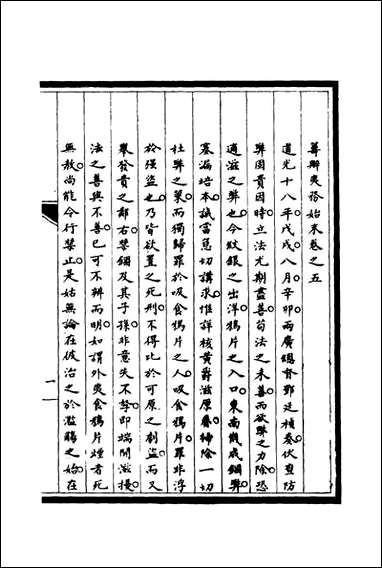 籌辦夷務始末卷之五
道光十八年戊戌八月辛卯兩廣總督鄧廷楨奏伏查防
弊固貴因時立法尤期盡善苟法之未善而欲弊之力除恐
適滋之弊也今紋銀之出洋鴉片之入口東南幾成錮弊
塞漏培本誠當急切講求惟詳核黃爵滋原奏掃除一切
杜弊之策而獨歸罪於吸食鴉片之人吸食鴉片罪非浮
於强盜也乃皆欲置之死刑不得比於可原之刧盜而又
舉發責之鄰右禁錮及其子孫非意失不孥即端開滋擾
法之善與不善已可不辨而明如謂外夷食鴉片煙者死
無赦尚能令行禁止是姑無論在彼治之於濫觴之始在
一